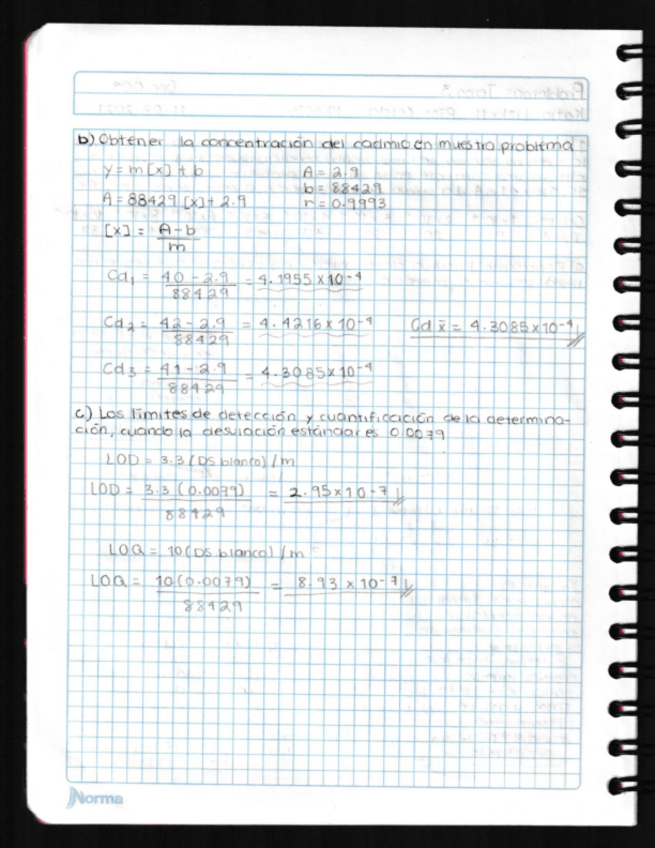 b) Obtener la concentración del cadmio en muestra problema
y = m[x] + b A = 2.9
A = 88429 [x] + 2.9 b = 88429
r = 0.9993
[x] = A - b
m
Cd1 = 40 - 2.9 = 4.1955 x 10-4
88429
Cd2 = 42 - 2.9 = 4.4216 x 10-4 Cd x̄ = 4.3085 x 10-4
88429
Cd3 = 41 - 2.9 = 4.3085 x 10-4
88429
c) Los límites de detección y cuantificación de la determina-
ción, cuando la desviación estándar es 0.0079
LOD = 3.3 (DS blanco) / m
LOD = 3.3 (0.0079) = 2.95 x 10-7
88429
LOQ = 10 (DS blanco) / m
LOQ = 10 (0.0079) = 8.93 x 10-7
88429
Norma